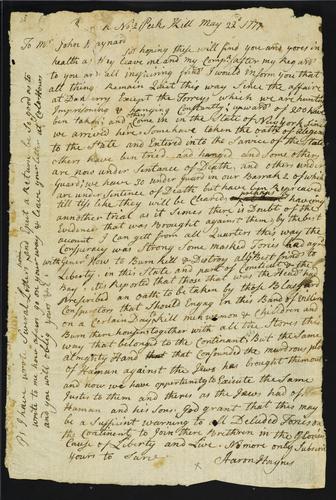 No 2 Peeks Kill May 22d 1777
To Mr John Maynard
Sir hoping these will find you and yores in
health as they leave me and my Company after my Regards
to you and all inquiring frinds I would Inform you that
all things Remain Quiet this way Since the affaire
at Danberry Except the Torreys which we are hunting
Imprisoning & hanging Constantly; upward of 200 have
ben taken and come in, in the State of New york Since
we arrived here Some have taken the oath of allegance
to the State and Entered into the Sarvice of the State
others have ben tried and hanged and Some others
are now under Sentance of Death, and others under
Guard; we have 30 under guard in our Barrak 2 of which
are under Sentance of Death but have ben Repreaved
till tis like they will be Cleared having
annother trial as it Semes there is Doubt of the
Evidence that was Brought against them, by the best
account I can gett from all Quarters this way the
Conspiracy was Strong Some masked Tories had agreed
with Genrl How to Burn kill & Destroy all frinds to
Liberty, in this State and part of Conneticut &
Bay, it is reported that those that was the Head had
Prescribed an oath to be taken by those Black
Conspirators that should Engage in this Band of villians
on a Certain Day to kill men women & Children and
Burn there houses together with all the Stores this
way that belonged to the Continant; But the Same
Almighty Hand that Confounded the murdrous plot
of Haman against the Jews has brought them out
and now we have opportunity to Execute the Same
Justis to them and theres as the Jews had of
Haman and his Sons, God grant that this may
be a Sufficent warning to all Deluded Toris on
the Continent to Join there Brethren in the Glorious
Cause of Liberty and Live. No more only Subscribe
yours to Sarve
Aaron Haynes
PS I have wrote several Letters and Got no Return be so good as to
write to me how affairs go on your way & leave your letter at Colo Howes
and you will oblige yours &c